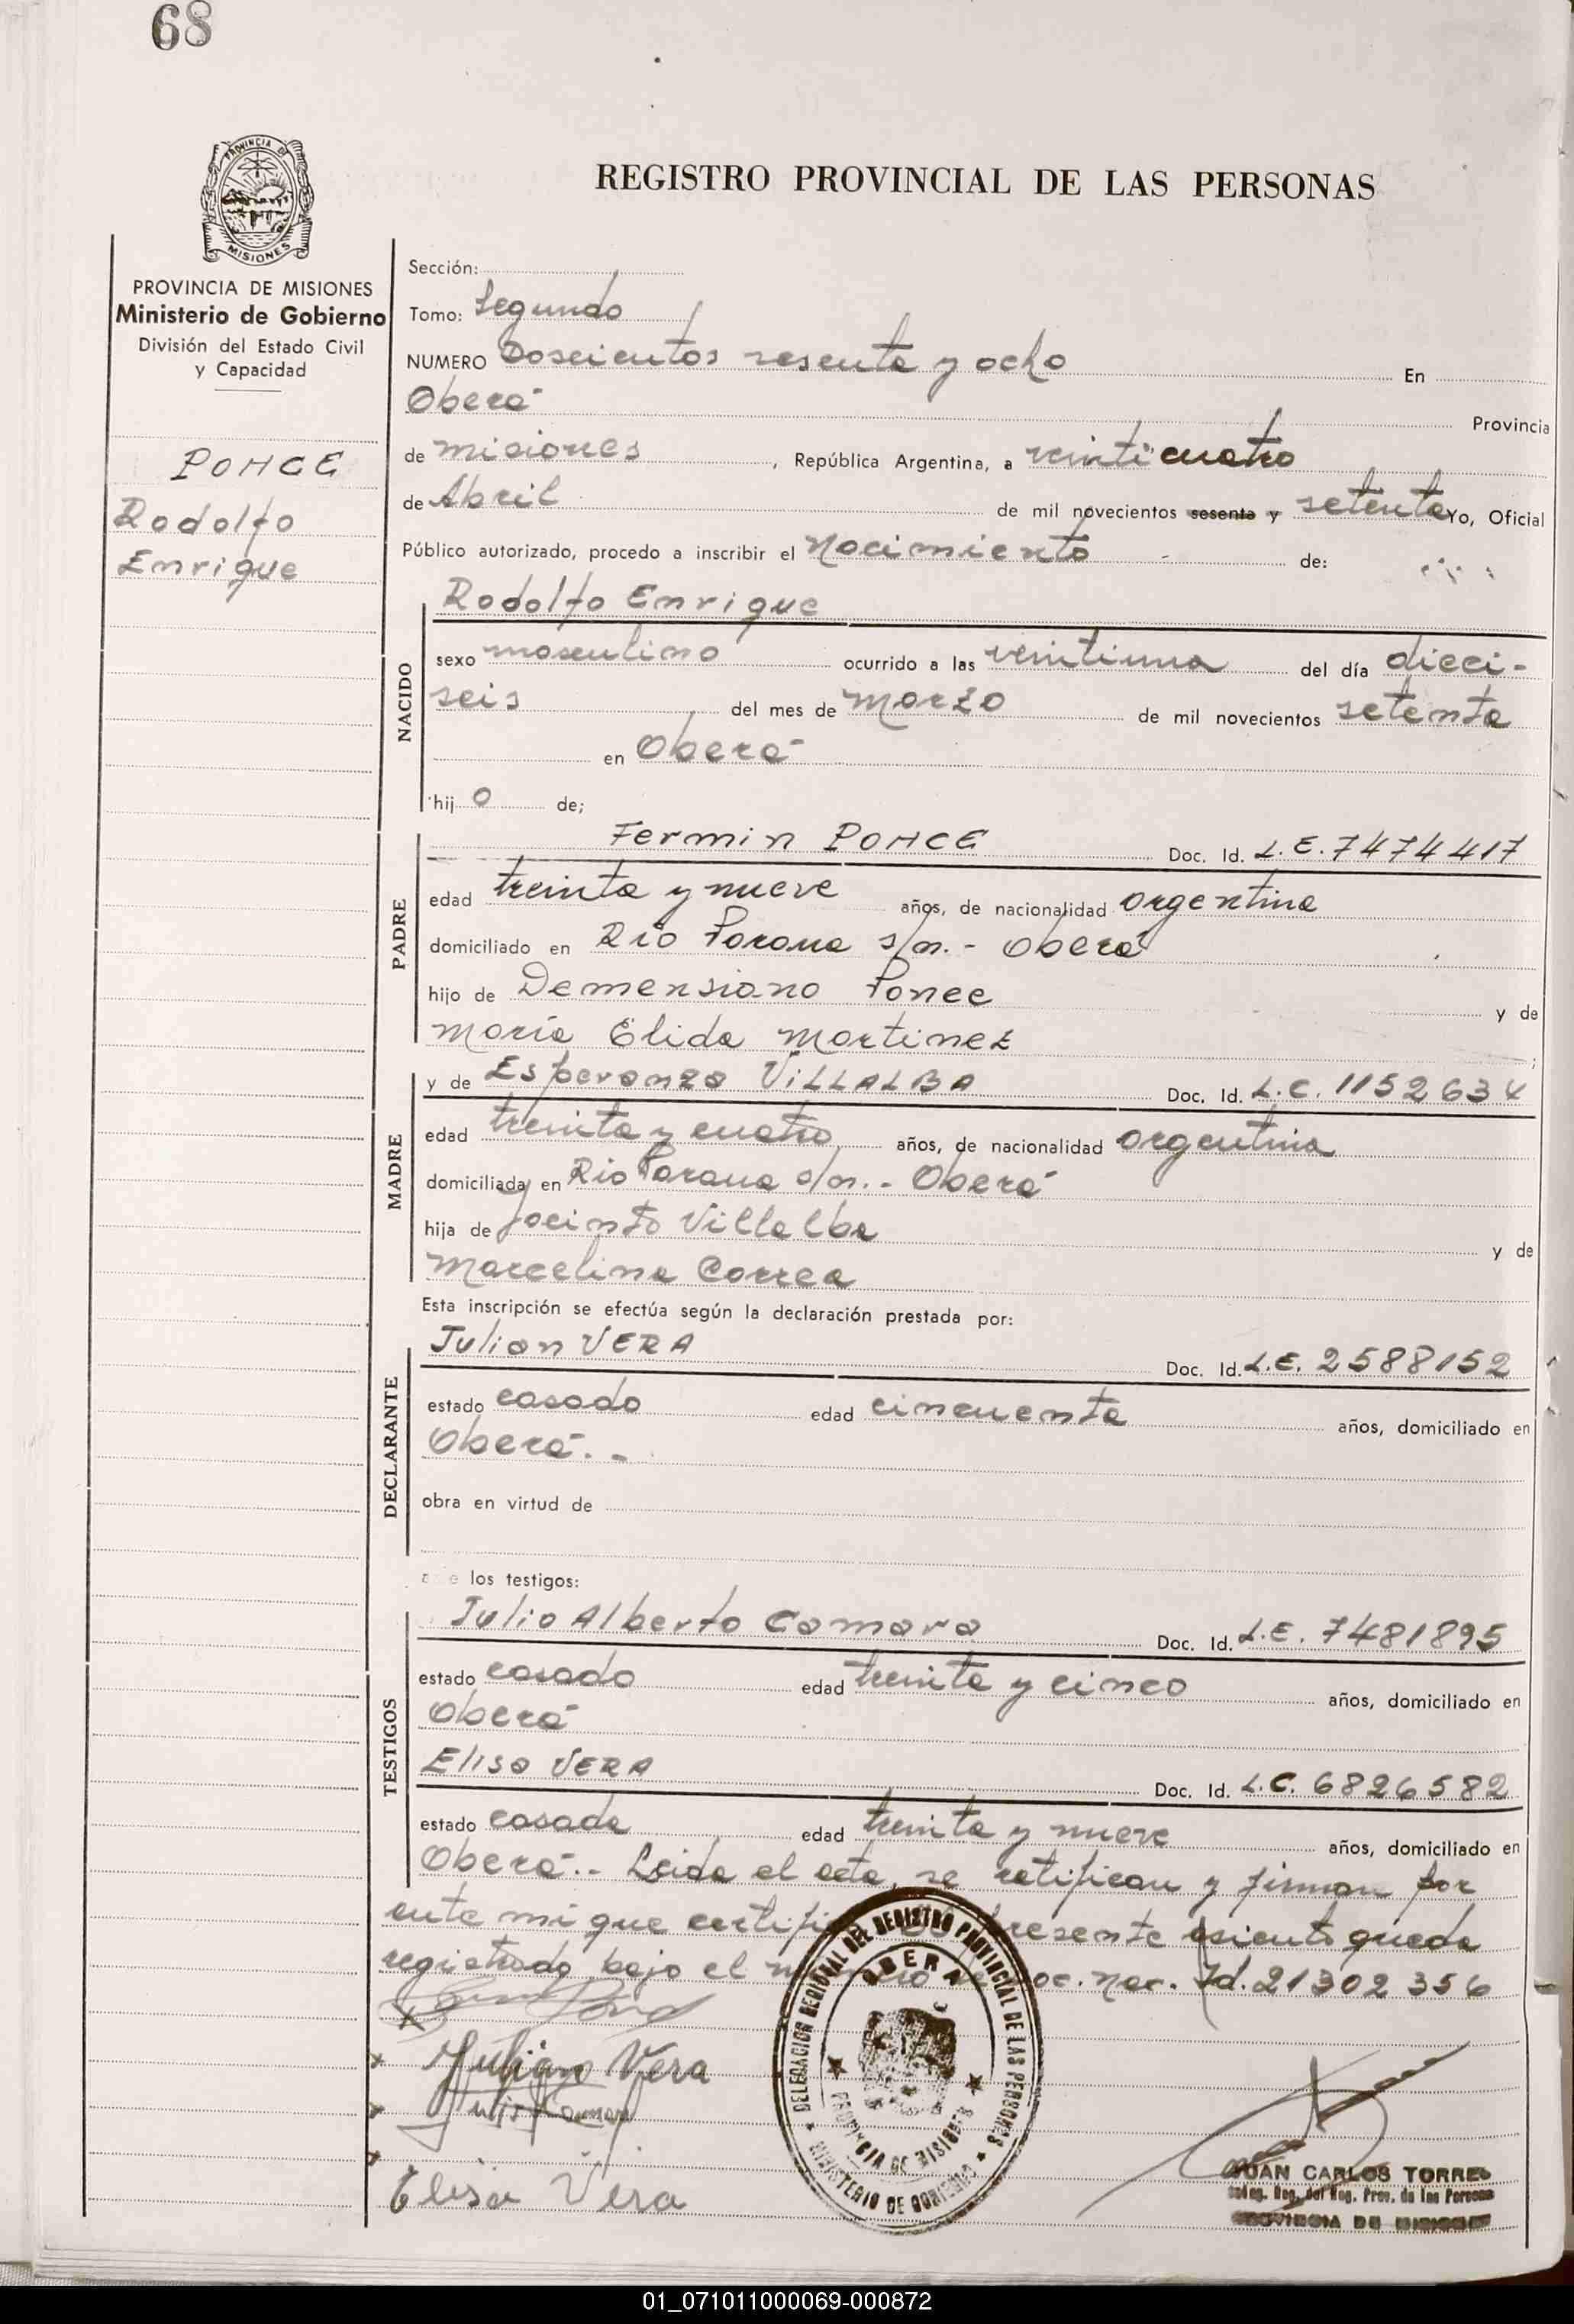 68
PROVINCIA DE
MISIONES
REGISTRO PROVINCIAL DE LAS PERSONAS
PROVINCIA DE MISIONES
Ministerio de Gobierno
División del Estado Civil
y Capacidad
PONCE
Rodolfo
Enrique
Sección:
Tomo: Segundo
NUMERO Doscientos sesenta y ocho En
Oberá Provincia
de misiones, República Argentina, a veinticuatro
de Abril de mil novecientos sesenta y setenta Yo, Oficial
Público autorizado, procedo a inscribir el nacimiento de:
Rodolfo Enrique
NACIDO
sexo masculino ocurrido a las veintiuna del día dieci-
seis del mes de marzo de mil novecientos setenta
en Oberá
hijo de;
PADRE
Fermin PONCE Doc. Id. L.E. 7474417
edad treinta y nueve años, de nacionalidad argentina
domiciliado en Río Parana s/n.- Oberá
hijo de Demensiano Ponce y de
María Elida Martinez
MADRE
y de Esperanza VILLALBA Doc. Id. L.C. 1152634
edad treinta y cuatro años, de nacionalidad argentina
domiciliada en Rio Parana s/n.- Oberá
hija de Jacinto Villalba y de
Marcelina Correa
Esta inscripción se efectúa según la declaración prestada por:
DECLARANTE
Julian VERA Doc. Id. L.E. 2588152
estado casado edad cincuenta años, domiciliado en
Oberá.-
obra en virtud de
los testigos:
TESTIGOS
Julio Alberto Camara Doc. Id. L.E. 7481895
estado casado edad treinta y cinco años, domiciliado en
Oberá
Elisa VERA Doc. Id. L.C. 6826582
estado casada edad treinta y nueve años, domiciliado en
Oberá.- Leida el acta, se ratifican y firman por
ante mi que certifi presente asiento queda
registrado bajo el nac. Id. 21302356
Julian Vera
Elisa Vera
DELEGACION REGIONAL DEL REGISTRO PROVINCIAL DE LAS PERSONAS
MINISTERIO DE GOBIERNO
OBERA
PROVINCIA DE MISIONES
JUAN CARLOS TORRES
Deleg. Reg. del Reg. Prov. de las Personas
PROVINCIA DE MISIONES
01_071011000069-000872